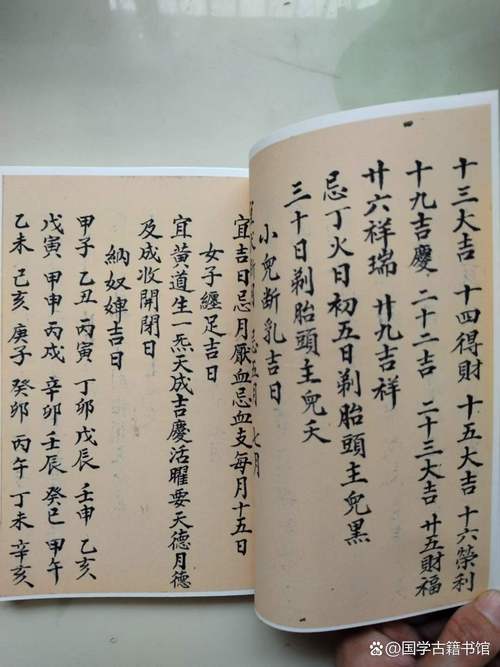 十三大吉 十四得財 十五大吉 十六榮利
十九吉慶 二十二吉 二十三大吉 廿五財福
廿六祥瑞 廿九吉祥
忌丁火日初五日剃胎頭主兒黑
三十日剃胎頭主兒夭
小兒断乳吉日
忌五月 七月
宜吉日忌月厭血忌血支每月十五日
女子纏足吉日
宜黃道生一炁天成吉慶活曜要天德月德
及成收開閉日
納奴婢吉日
甲子 乙丑 丙寅 丁卯 戊辰 壬申 乙亥
戊寅 甲申 丙戌 辛卯 壬辰 癸巳 甲午
乙未 己亥 庚子 癸卯 丙午 丁未 辛亥
@国学古籍书馆